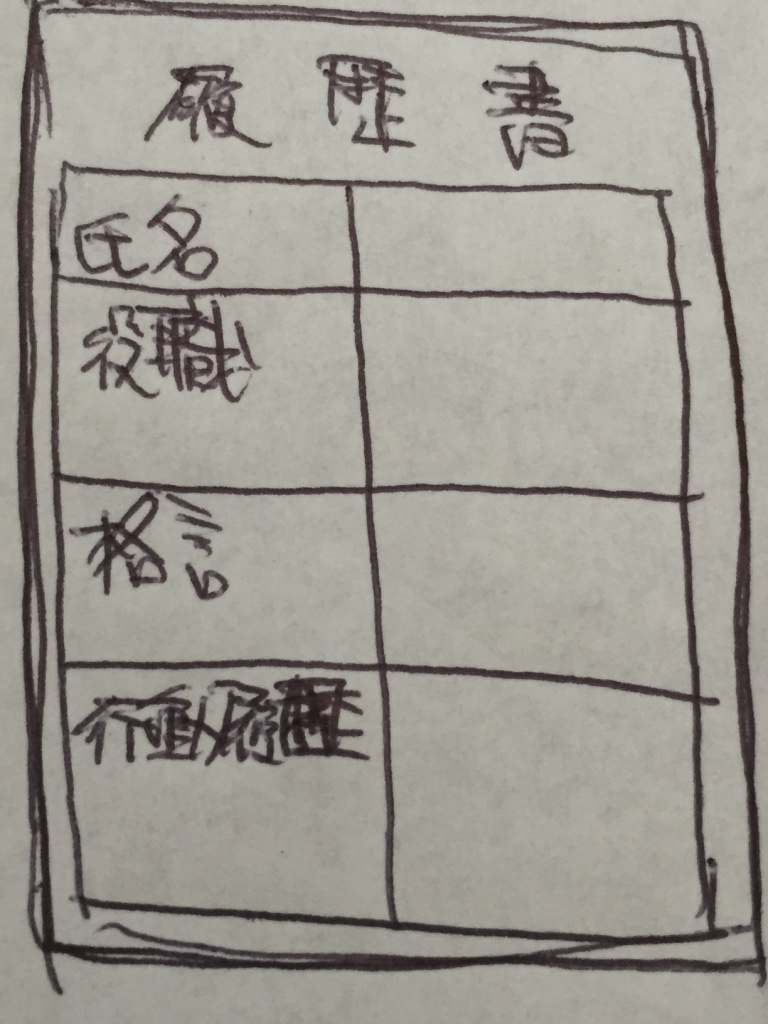 履歴書
氏名
役職
格言
行動履歴